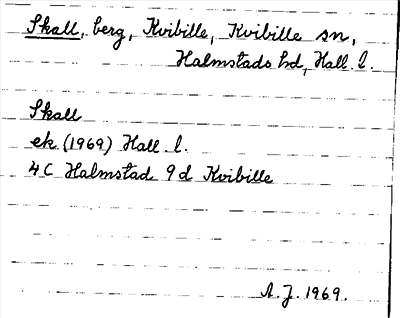 Skall, berg, Kvibille, Kvibille sn,
Halmstads hd, Hall. l.
Skall
ek. (1969) Hall. l.
4C Halmstad 9d Kvibille
A.J. 1969.